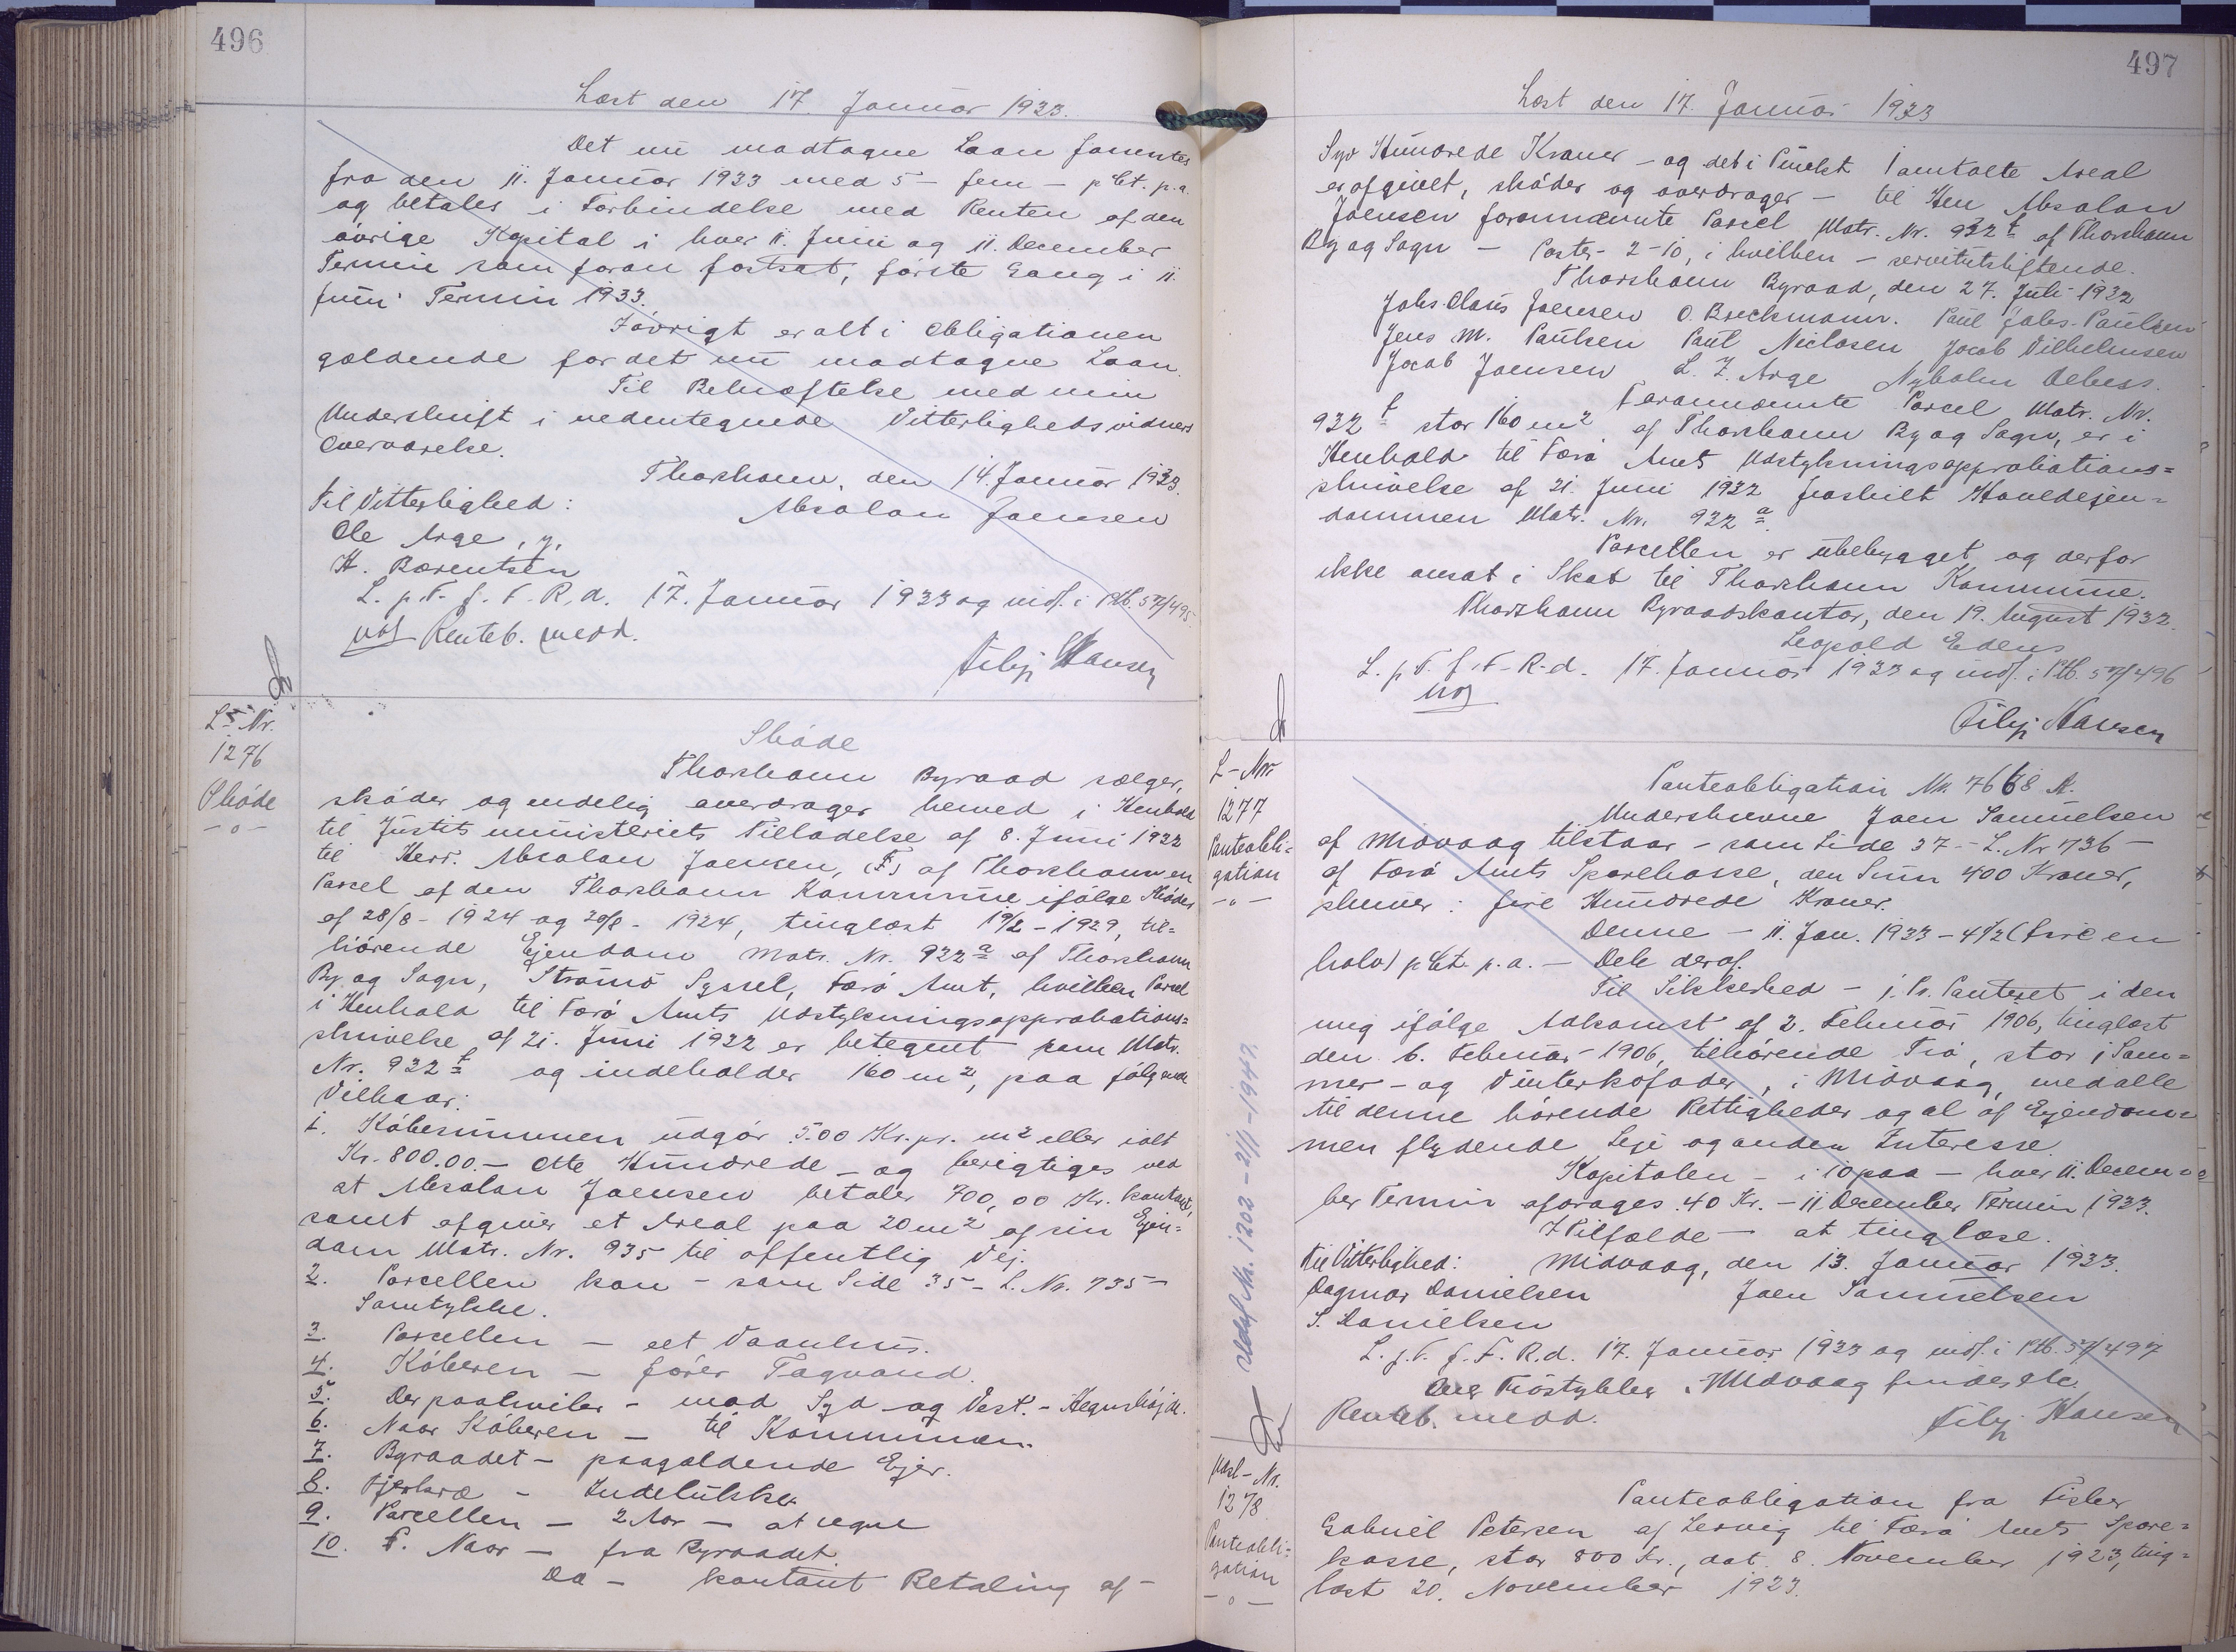 496
Læst den 17. Januar 1933.
Det nu modtagne Laan forrentes
fra den 11. Januar 1933 med 5 - fem - pCt. p.a.
og betales i Forbindelse med Renten af den
övrige Kapital i hver 11. Juni og 11. December
Termin som foran fortsat, förste Gang i 11.
Juni Termin 1933.
Iövrigt er alt i Obligationen
gældende for det nu modtagne Laan.
Til Bekræftelse med min
Underskrift i nedentegnede Vitterlighedsvidners
Overværelse.
Thorshavn, den 14. Januar 1933.
Til Vitterlighed:
Absalon Joensen
Ole Arge, y.
H. Bærentsen
L. p. T. f. F. R. d. 17. Januar 1933 og indf. i Ptb. 57/495.
Renteb. medd.
Filip Hansen
L-Nr.
1276
Sköde
-o-
Sköde
Thorshavn Byraad sælger,
sköder og endelig overdrager herved i Henhold
til Justitsministeriets Tilladelse af 8. Juni 1932
til Herr. Absalon Joensen, (F) af Thorshavn en
Parcel af den Thorshavn Kommune ifölge Sköder
af 28/8 - 1924 og 29/8 - 1924, tinglæst 19/2 - 1929, til=
hörende Ejendom Matr. Nr. 932 a af Thorshavn
By og Sogn, Strömö Syssel, Færö Amt, hvilken Parcel
i Henhold til Færö Amts Udstykningsapprobations=
skrivelse af 21. Juni 1932 er betegnet som Matr.
Nr. 932 t og indeholder 160 m2, paa fölgende
Vilkaar:
1. Köbesummen udgör 5.00 Kr. pr. m2 eller ialt
Kr. 800.00.- Otte Hundrede - og berigtiges ved
at Absalon Joensen betaler 700,00 Kr. kontant,
samt afgiver et Areal paa 20 m2 af sin Ejen=
dom Matr. Nr. 935 til offentlig Vej.
2. Parcellen kan - som Side 35 - L. Nr. 735 -
Samtykke.
3. Parcellen - eet Vaanhus.
4. Köberen - förer Tagvand.
5. Der paahviler - mod Syd og Vest. - Hegnshöjde.
6. Naar Köberen - til Kommunen.
7. Byraadet - paagældende Ejer.
8. Fjerkræ - Indelukke.
9. Parcellen - 2 Aar - at regne
10. F. Naar - fra Byraadet.
Da - kontant Betaling af -
497
Læst den 17. Januar 1933
Syv Hundrede Kroner - og det i Punkt 1 omtalte Areal
er afgivet, sköder og overdrager - til Hr. Absalon
Joensen forannævnte Parcel Matr. Nr. 932 t af Thorshavn
By og Sogn - Poster 2-10, i hvilken - servitutstiftende.
Thorshavn Byraad, den 27. Juli 1932
Johs. Claus Joensen O. Breckmann. Paul Johs. Paulsen
Jens M. Paulsen Paul Niclasen Jacob Vilhelmsen
Jacob Joensen L. Z. Arge Nyholm Debess.
Forannævnte Parcel Matr. Nr.
932 t stor 160 m2 af Thorshavn By og Sogn, er i
Henhold til Færö Amts Udstykningsapprobations=
skrivelse af 21. Juni 1932 fraskilt Hovedejen=
dommen Matr. Nr. 932 a.
Parcellen er ubebygget og derfor
ikke ansat i Skat til Thorshavn Kommune.
Thorshavn Byraadskontor, den 19. August 1932.
Leopold Edens
L. p. T. f. F. R. d. 17. Januar 1933 og indf. i Ptb. 57/496
Filip Hansen
L-Nr.
1277
Panteobli=
gation
-o-
Panteobligation Nr. 7668 A.
Underskrevne Joen Samuelsen
af Midvaag tilstaar - som Side 37 - L. Nr 736 -
af Færö Amts Sparekasse, den Sum 400 Kroner,
skriver: fire Hundrede Kroner.
Denne - 11. Jan. 1933 - 4 1/2 (fire en
halv) pCt. p.a. - Dele deraf.
Til Sikkerhed - j. Pr. Panteret i den
mig ifölge Adkomst af 2. Februar 1906, tinglæst
den 6. Februar 1906, tilhörende Trö, stor 1 Som=
mer- og Vinterkofoder, i Midvaag, med alle
til denne hörende Rettigheder og al af Ejendom=
men flydende Leje og anden Interesse.
Kapitalen - i 10 paa - hver 11. Decem=
ber Termin afdrages 40 Kr. - 11 December Termin 1933.
I Tilfælde - at tinglæse.
Til Vitterlighed: Midvaag, den 13. Januar 1933.
Dagmar Danielsen Joen Samuelsen
S. Danielsen
L. p. T. f. F. R. d. 17. Januar 1933 og indf. i Ptb. 57/497
Tröstykker i Midvaag findes
Renteb. medd.
Filip Hansen
Udslf Nr. 1202 - 2/1 - 1942.
Udsl-Nr.
1278
Panteobli=
gation
-o-
Panteobligation fra Fisker
Gabriel Petersen af Lervig til Færö Amts Spare=
kasse, stor 800 Kr., dat. 8. November 1923, ting=
læst 20. November 1923.